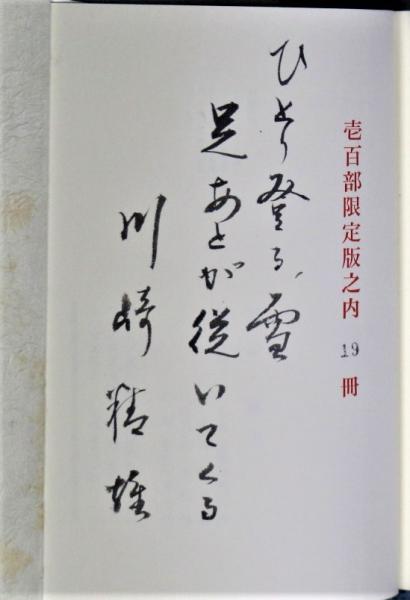 壱百部限定版之内 19 冊
ひとり登る、雪
足あとが従いてくる
川崎精雄